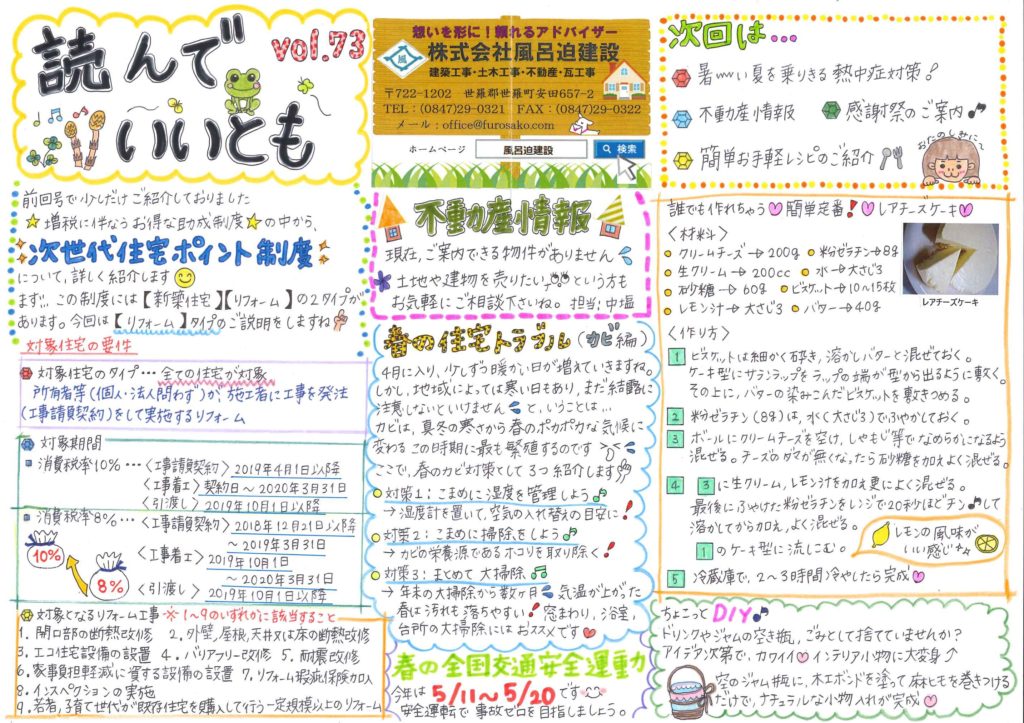 読んで
いいとも
vol.73
想いを形に！頼れるアドバイザー
株式会社風呂迫建設
建築工事・土木工事・不動産・瓦工事
〒722-1202 世羅郡世羅町安田657-2
TEL：(0847)29-0321 FAX：(0847)29-0322
メール：office@furosako.com
ホームページ 風呂迫建設 検索
次回は…
暑〰い夏を乗りきる 熱中症対策!
不動産情報 感謝祭のご案内♪
簡単お手軽レシピのご紹介
おたのしみに
前回号で少しだけご紹介しておりました
☆増税に伴なうお得な助成制度☆の中から、
次世代住宅ポイント制度
について、詳しく紹介します
まず、、この制度には【新築住宅】【リフォーム】の2タイプが
あります。今回は【リフォーム】タイプのご説明をしますね
対象住宅の要件
対象住宅のタイプ…全ての住宅が対象
所有者等(個人・法人問わず)が、施工者に工事を発注
(工事請負契約)をして実施するリフォーム
対象期間
消費税率10%…〈工事請負契約〉2019年4月1日以降
〈工事着工〉契約日〜2020年3月31日
〈引渡し〉2019年10月1日以降
消費税率8%…〈工事請負契約〉2018年12月21日以降
〜2019年3月31日
〈工事着工〉2019年10月1日
〜2020年3月31日
〈引渡し〉2019年10月1日以降
10%
8%
対象となるリフォーム工事 ※1〜9のいずれかに該当すること
1. 開口部の断熱改修 2. 外壁、屋根、天井又は床の断熱改修
3. エコ住宅設備の設置 4. バリアフリー改修 5. 耐震改修
6. 家事負担軽減に資する設備の設置 7. リフォーム瑕疵保険加入
8. インスペクションの実施
9. 若者、子育て世代が既存住宅を購入して行う一定規模以上のリフォーム
不動産情報
現在、ご案内できる物件がありません
土地や建物を売りたい、、という方も
お気軽にご相談下さいね。担当：中塩
春の住宅トラブル(カビ編)
4月に入り、少しずつ暖かい日が増えていきますね。
しかし、地域によっては寒い日もあり、まだ結露に
注意しないといけません と、いうことは…
カビは、真冬の寒さから春のポカポカな気候に
変わるこの時期に最も繁殖するのです
ここで、春のカビ対策として3つ紹介します
対策1：こまめに湿度を管理しよう♪
→湿度計を置いて、空気の入れ替えの目安に！
対策2：こまめに掃除をしよう♪
→カビの栄養源であるホコリを取り除く！
対策3：まとめて大掃除♫
→年末の大掃除から数ヶ月 気温が上がった
春は汚れも落ちやすい！窓まわり、浴室、
台所の大掃除にはおススメです♥
春の全国交通安全運動
今年は 5/11〜5/20 です
安全運転で事故ゼロを目指しましょう。
誰でも作れちゃう♥簡単定番！♥レアチーズケーキ♥
〈材料〉
クリームチーズ→200g 粉ゼラチン→8g
生クリーム→200cc 水→大さじ3
砂糖→60g ビスケット→10〜15枚
レモン汁→大さじ3 バター→40g
レアチーズケーキ
〈作り方〉
1 ビスケットは細かく砕き、溶かしバターと混ぜておく。
ケーキ型にサランラップをラップの端が型から出るように敷く。
その上に、バターの染みこんだビスケットを敷きつめる。
2 粉ゼラチン(8g)は、水(大さじ3)でふやかしておく。
3 ボールにクリームチーズを空け、しゃもじ等でなめらかになるよう
混ぜる。チーズのダマが無くなったら砂糖を加えよく混ぜる。
4 3に生クリーム、レモン汁を加え更によく混ぜる。
最後にふやけた粉ゼラチンをレンジで20秒ほどチン♪して
溶かしてから加え、よく混ぜる。
1のケーキ型に流しこむ。
レモンの風味が
いい感じ
5 冷蔵庫で、2〜3時間冷やしたら完成♥
ちょこっと DIY♪
ドリンクやジャムの空き瓶、ごみとして捨てていませんか？
アイデア次第で、カワイイ♥インテリア小物に大変身
空のジャム瓶に、木工ボンドを塗って麻ヒモを巻きつける
だけで、ナチュラルな小物入れが完成♥